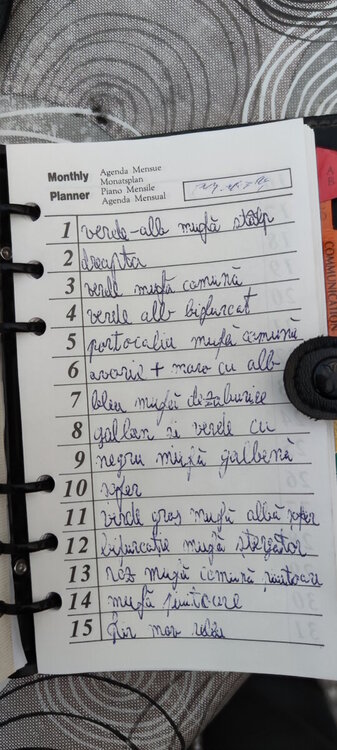 Monthly Planner
Agenda Mensue
Monatsplan
Piano Mensile
Agenda Mensual
1 verde-alb mufă stâlp
2 dreapta
3 verde mufă comună
4 verde alb bifurcat
5 portocaliu mufă comună
6 avarie + maro cu alb
7 bleu mufă dezaburire
8 galben și verde cu
9 negru mufă galbenă
10 șofer
11 verde gros mufă albă șofer
12 bifurcație mufă ștergător
13 roz mufă comună
14 mufă
15 fir mov
COMMUNICATION
AB